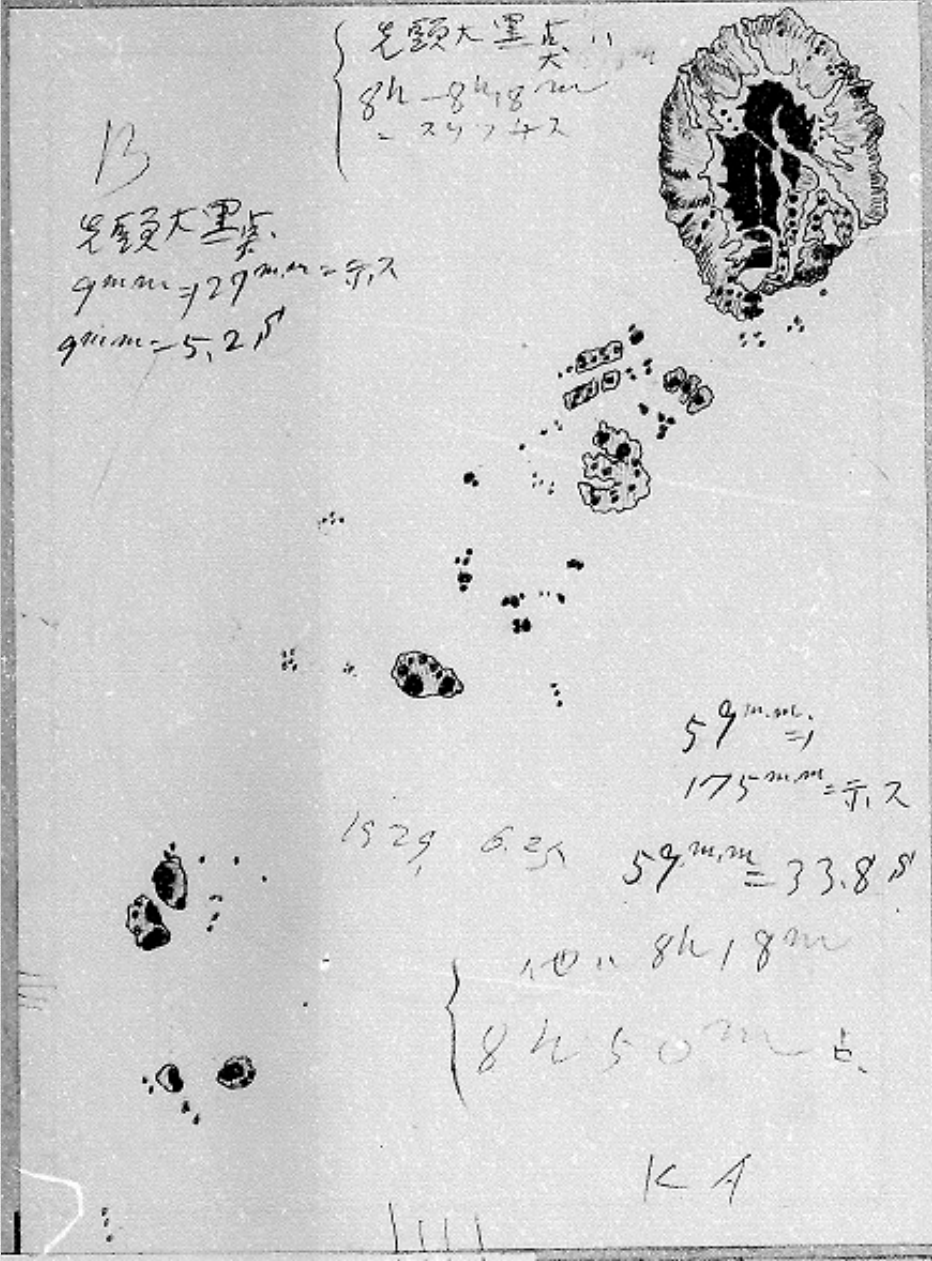 先頭大黒点ハ
8h-8h,8m
ニスケッチス
B
先頭大黒点
9mm=,29mm=示ス
9mm=5,2S
59m.m.=,
175m.m=示ス
1929, 6.25
59m.m=33.8S
他ハ 8h,8m
8h50m
KA